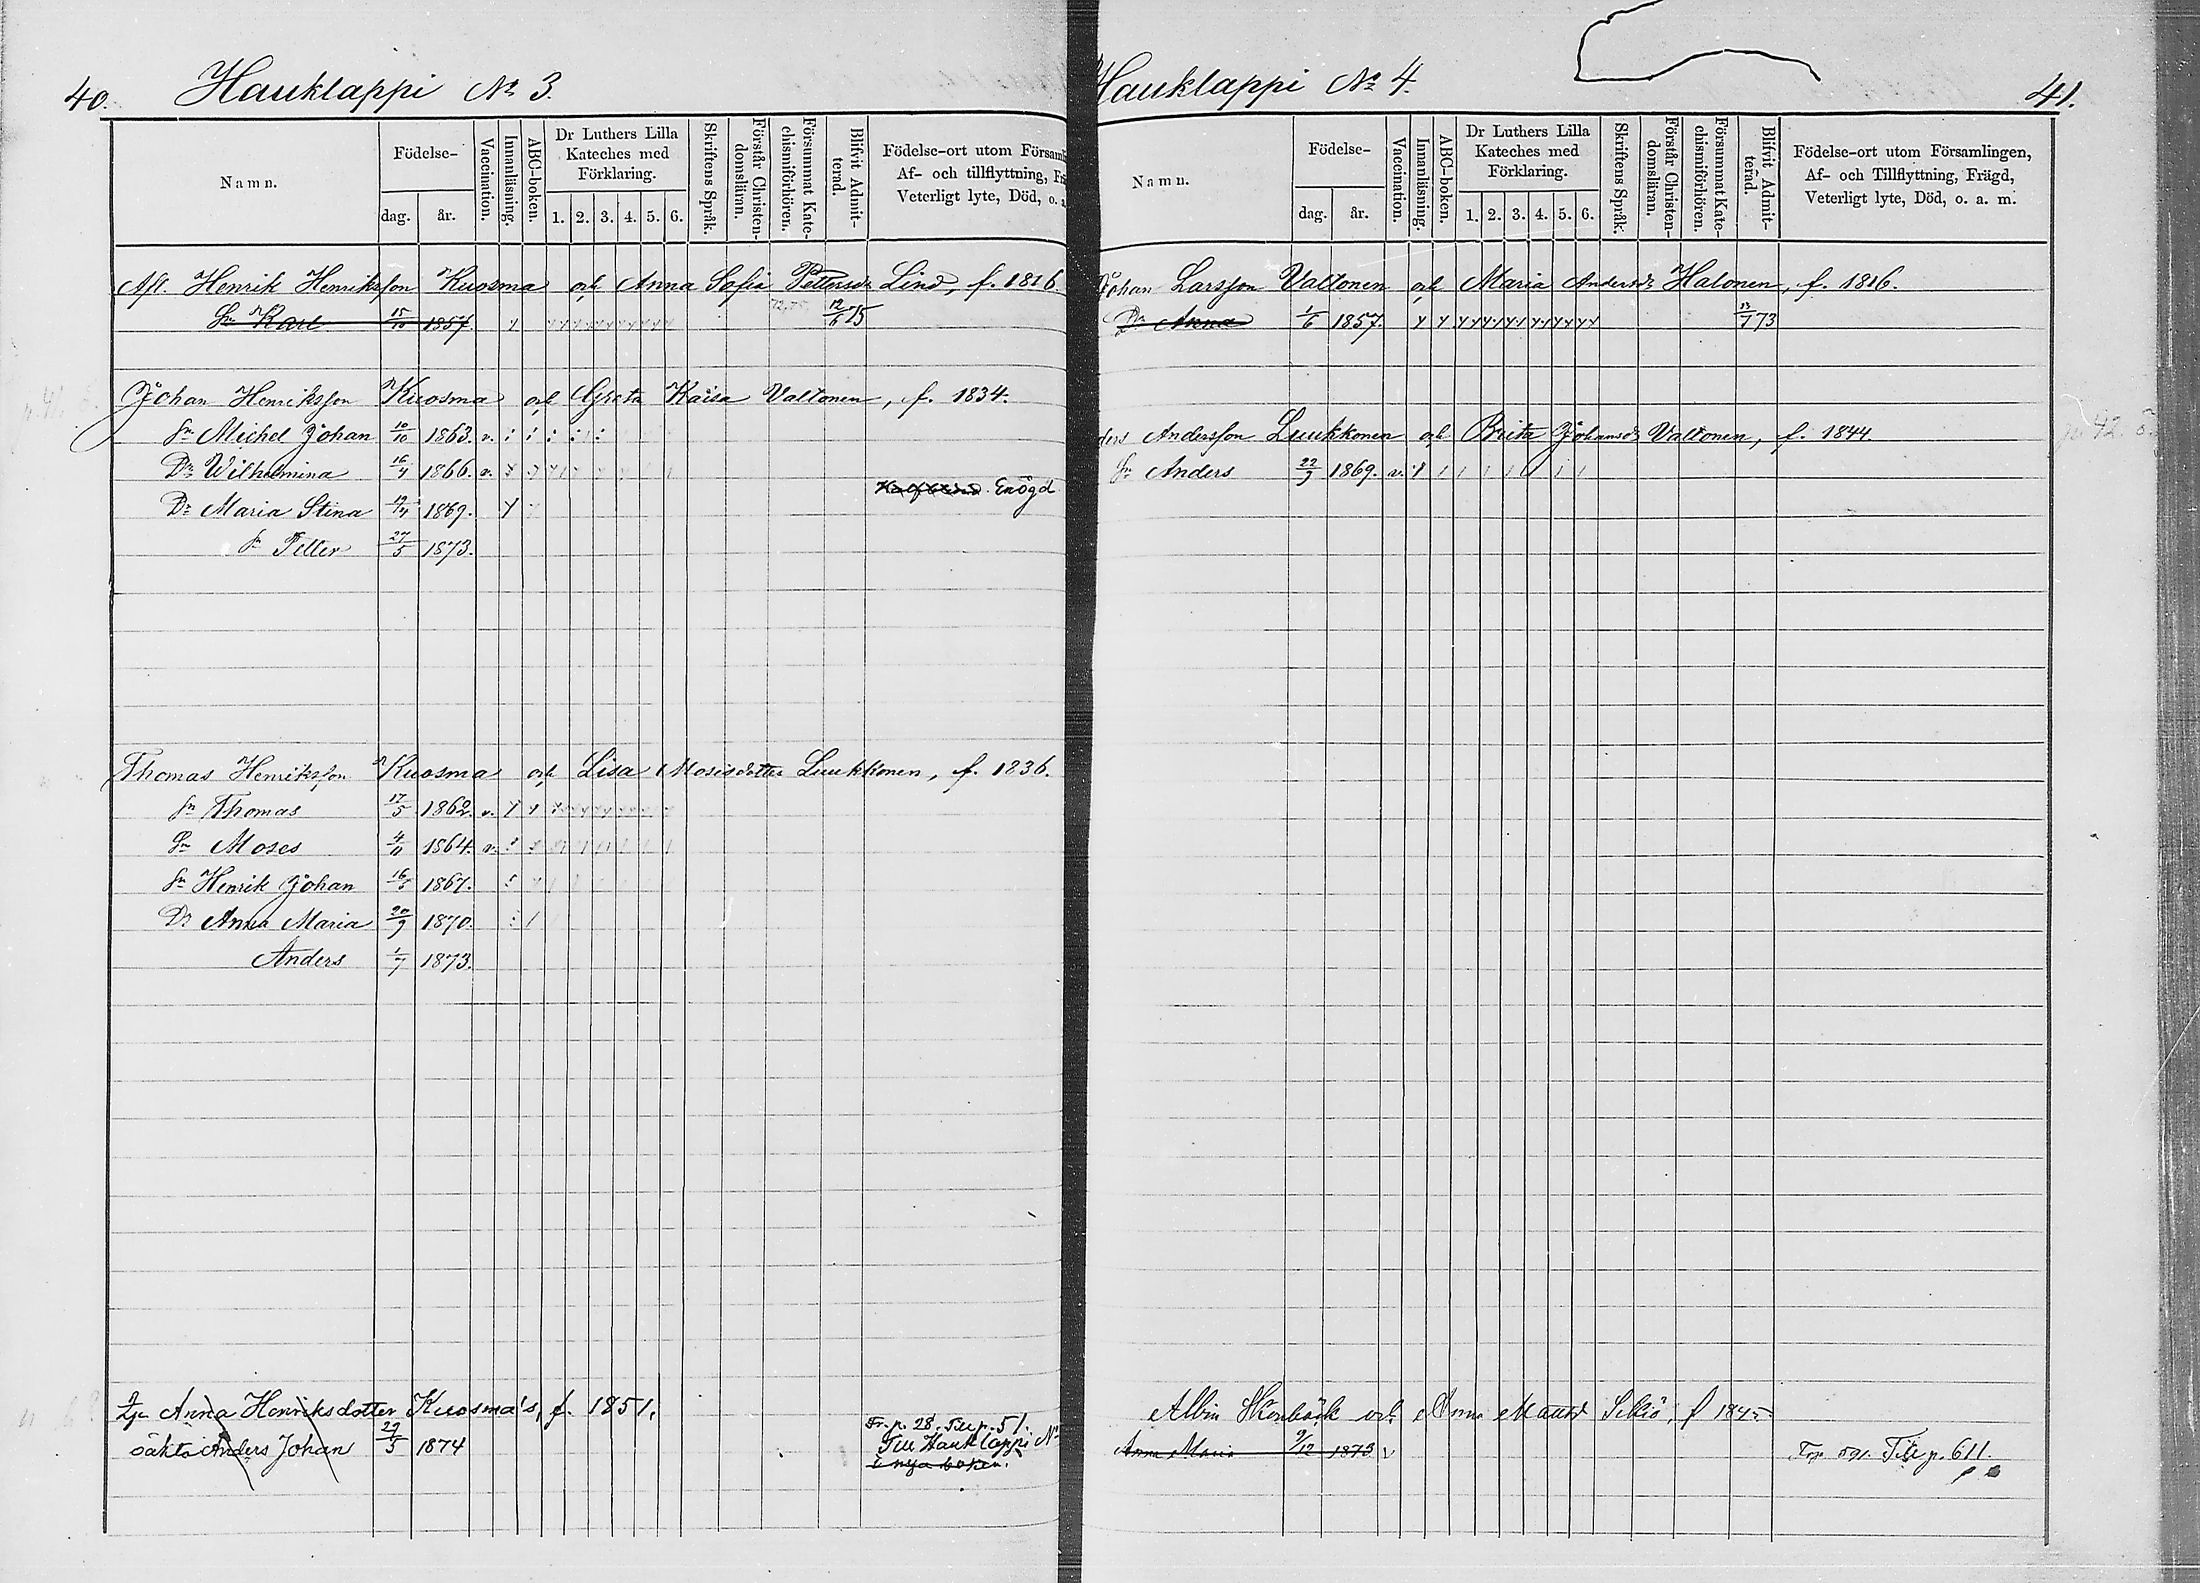 40. Hauklappi No 3.
Namn.
Födelse-
dag. år.
Vaccination.
Innanläsning.
ABC-boken.
Dr Luthers Lilla
Kateches med
Förklaring.
1. 2. 3. 4. 5. 6.
Skriftens Språk.
Förstår Christen-
domsläran.
Försummat Kate-
chismiförhören.
Blifvit Admit-
terad.
Födelse-ort utom Församl
Af- och tillflyttning,
Veterligt lyte, Död, o. a.
Afl. Henrik Henriksson Kuosma och Anna Sofia Pettersdr Lind, f. 1816.
Sn Karl 15/10 1857. 12/6 75
Johan Henriksson Kuosma och Greta Kaisa Valtonen, f. 1834.
Sn Michel Johan 10/10 1863. v.
Dr Wilhelmina 16/4 1866. v.
Enögd
Dr Maria Stina 19/4 1869.
Sn Petter 27/5 1873.
Thomas Henriksson Kuosma och Lisa Mosisdotter Luukkonen, f. 1836.
Sn Thomas 17/5 1862. v.
Sn Moses 4/11 1864. v.
Sn Henrik Johan 16/5 1867.
Dr Anna Maria 20/9 1870.
Anders 1/7 1873.
Anna Henriksdotter Kuosma's, f. 1851.
Fr. p. 28. Till p. 51.
oäkta Anders Johan 27/5 1874 Till Hauklappi No
i nya boken.
Hauklappi No 4. 41.
Namn.
Födelse-
dag. år.
Vaccination.
Innanläsning.
ABC-boken.
Dr Luthers Lilla
Kateches med
Förklaring.
1. 2. 3. 4. 5. 6.
Skriftens Språk.
Förstår Christen-
domsläran.
Försummat Kate-
chismiförhören.
Blifvit Admit-
terad.
Födelse-ort utom Församlingen,
Af- och Tillflyttning, Frägd,
Veterligt lyte, Död, o. a. m.
Johan Larsson Valtonen och Maria Andersdr Halonen, f. 1816.
Dr Anna 1/6 1857. 13/7 73
ders Andersson Luukkonen och Brita Johansdr Valtonen, f. 1844.
Sn Anders 22/9 1869. v.
Albin och Anna f 1845
Anna Maria 9/12 1873 v Till p. 611.